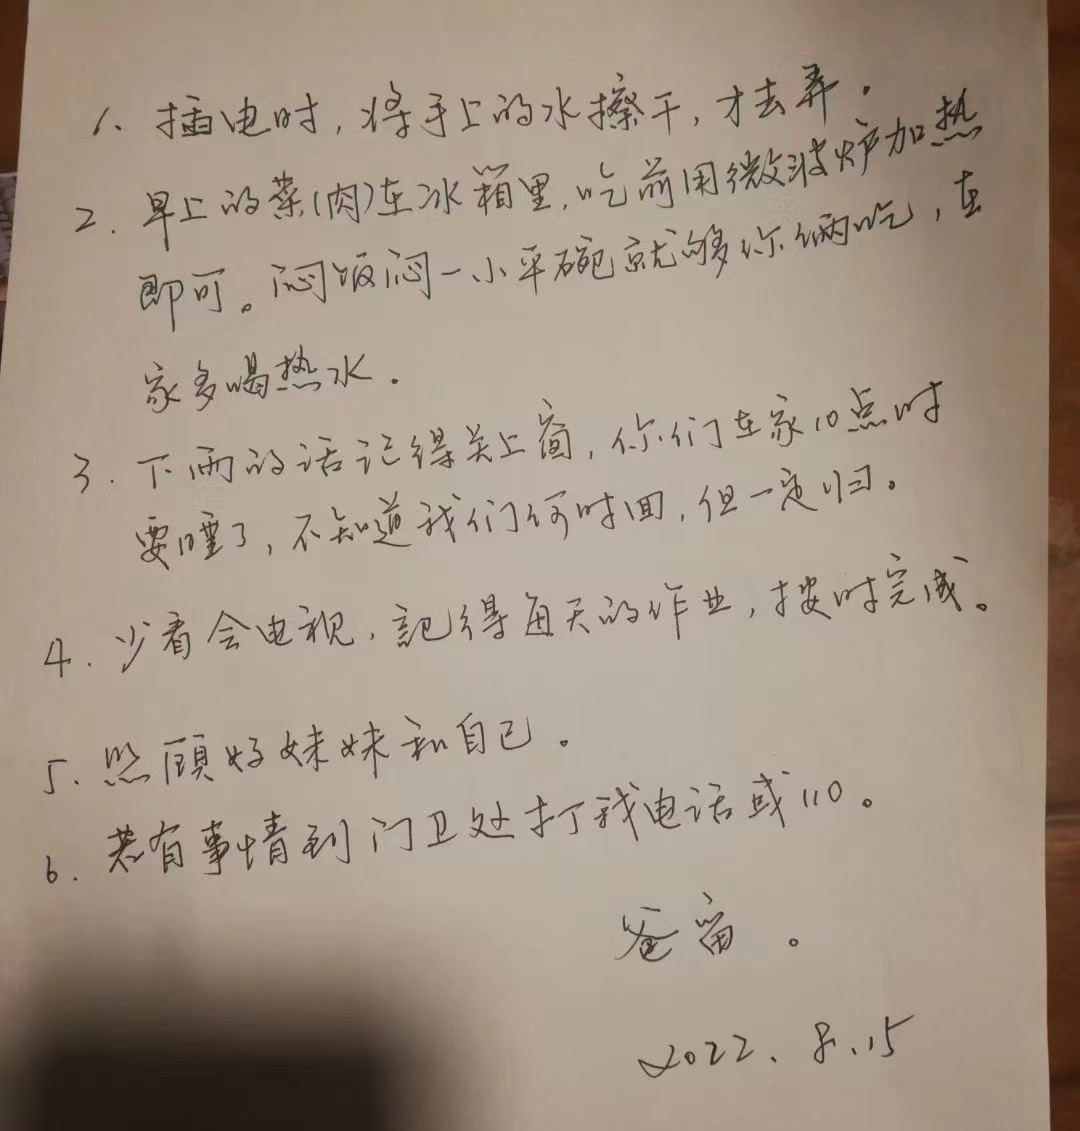 1. 插电时，将手上的水擦干，才去弄.
2. 早上的菜(肉)在冰箱里，吃前用微波炉加热
即可。闷饭闷一小平碗就够你俩吃，在
家多喝热水.
3. 下雨的话记得关上窗，你们在家10点时
要睡了，不知道我们何时回，但一定归。
4. 少看会电视，記得每天的作业，按时完成。
5. 照顾好妹妹和自己。
6. 若有事情到门卫处打我电话或110。
爸留。
2022.8.15